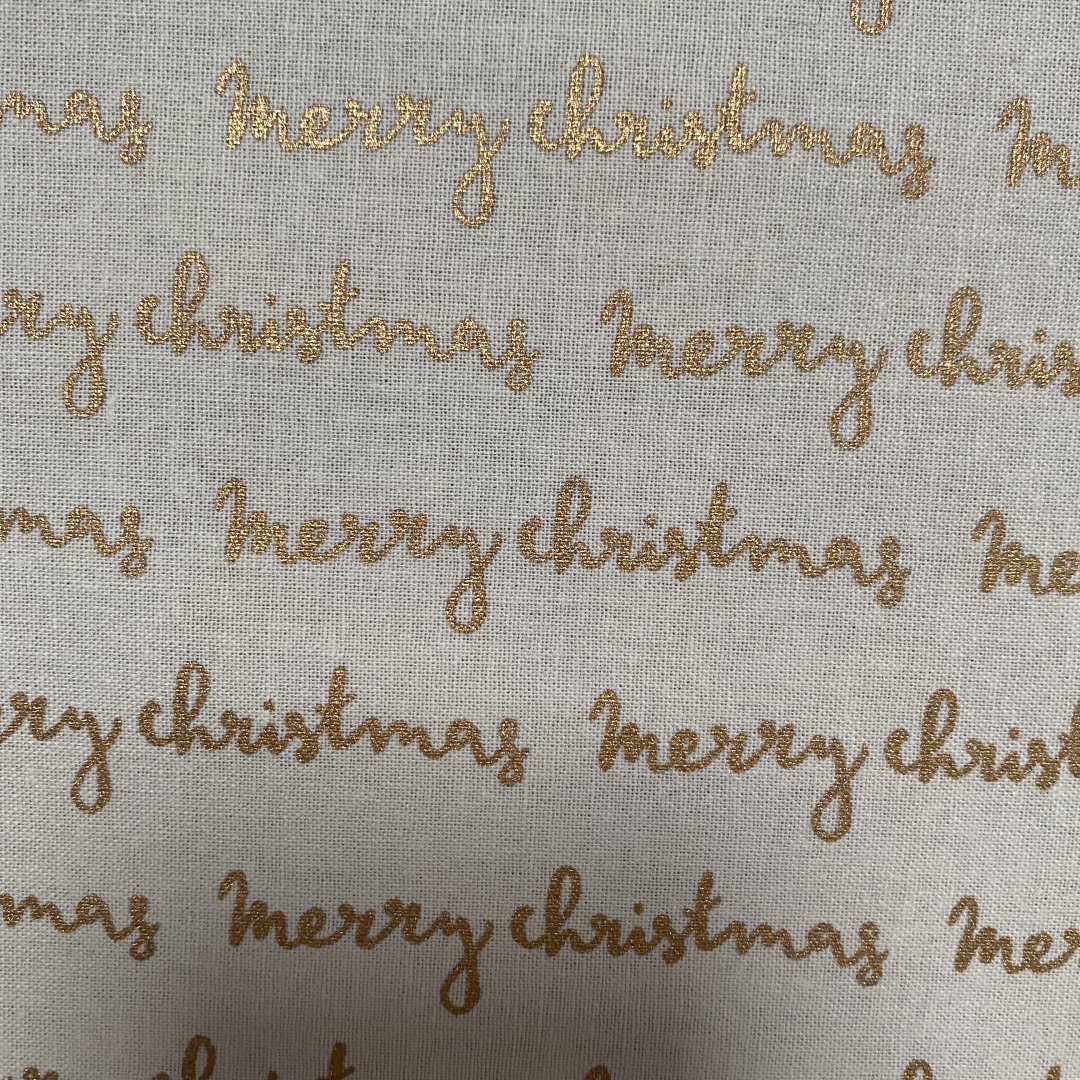 mas merry christmas m
ry christmas merry chris
mas merry christmas me
ry christmas merry christ
mas merry christmas mer